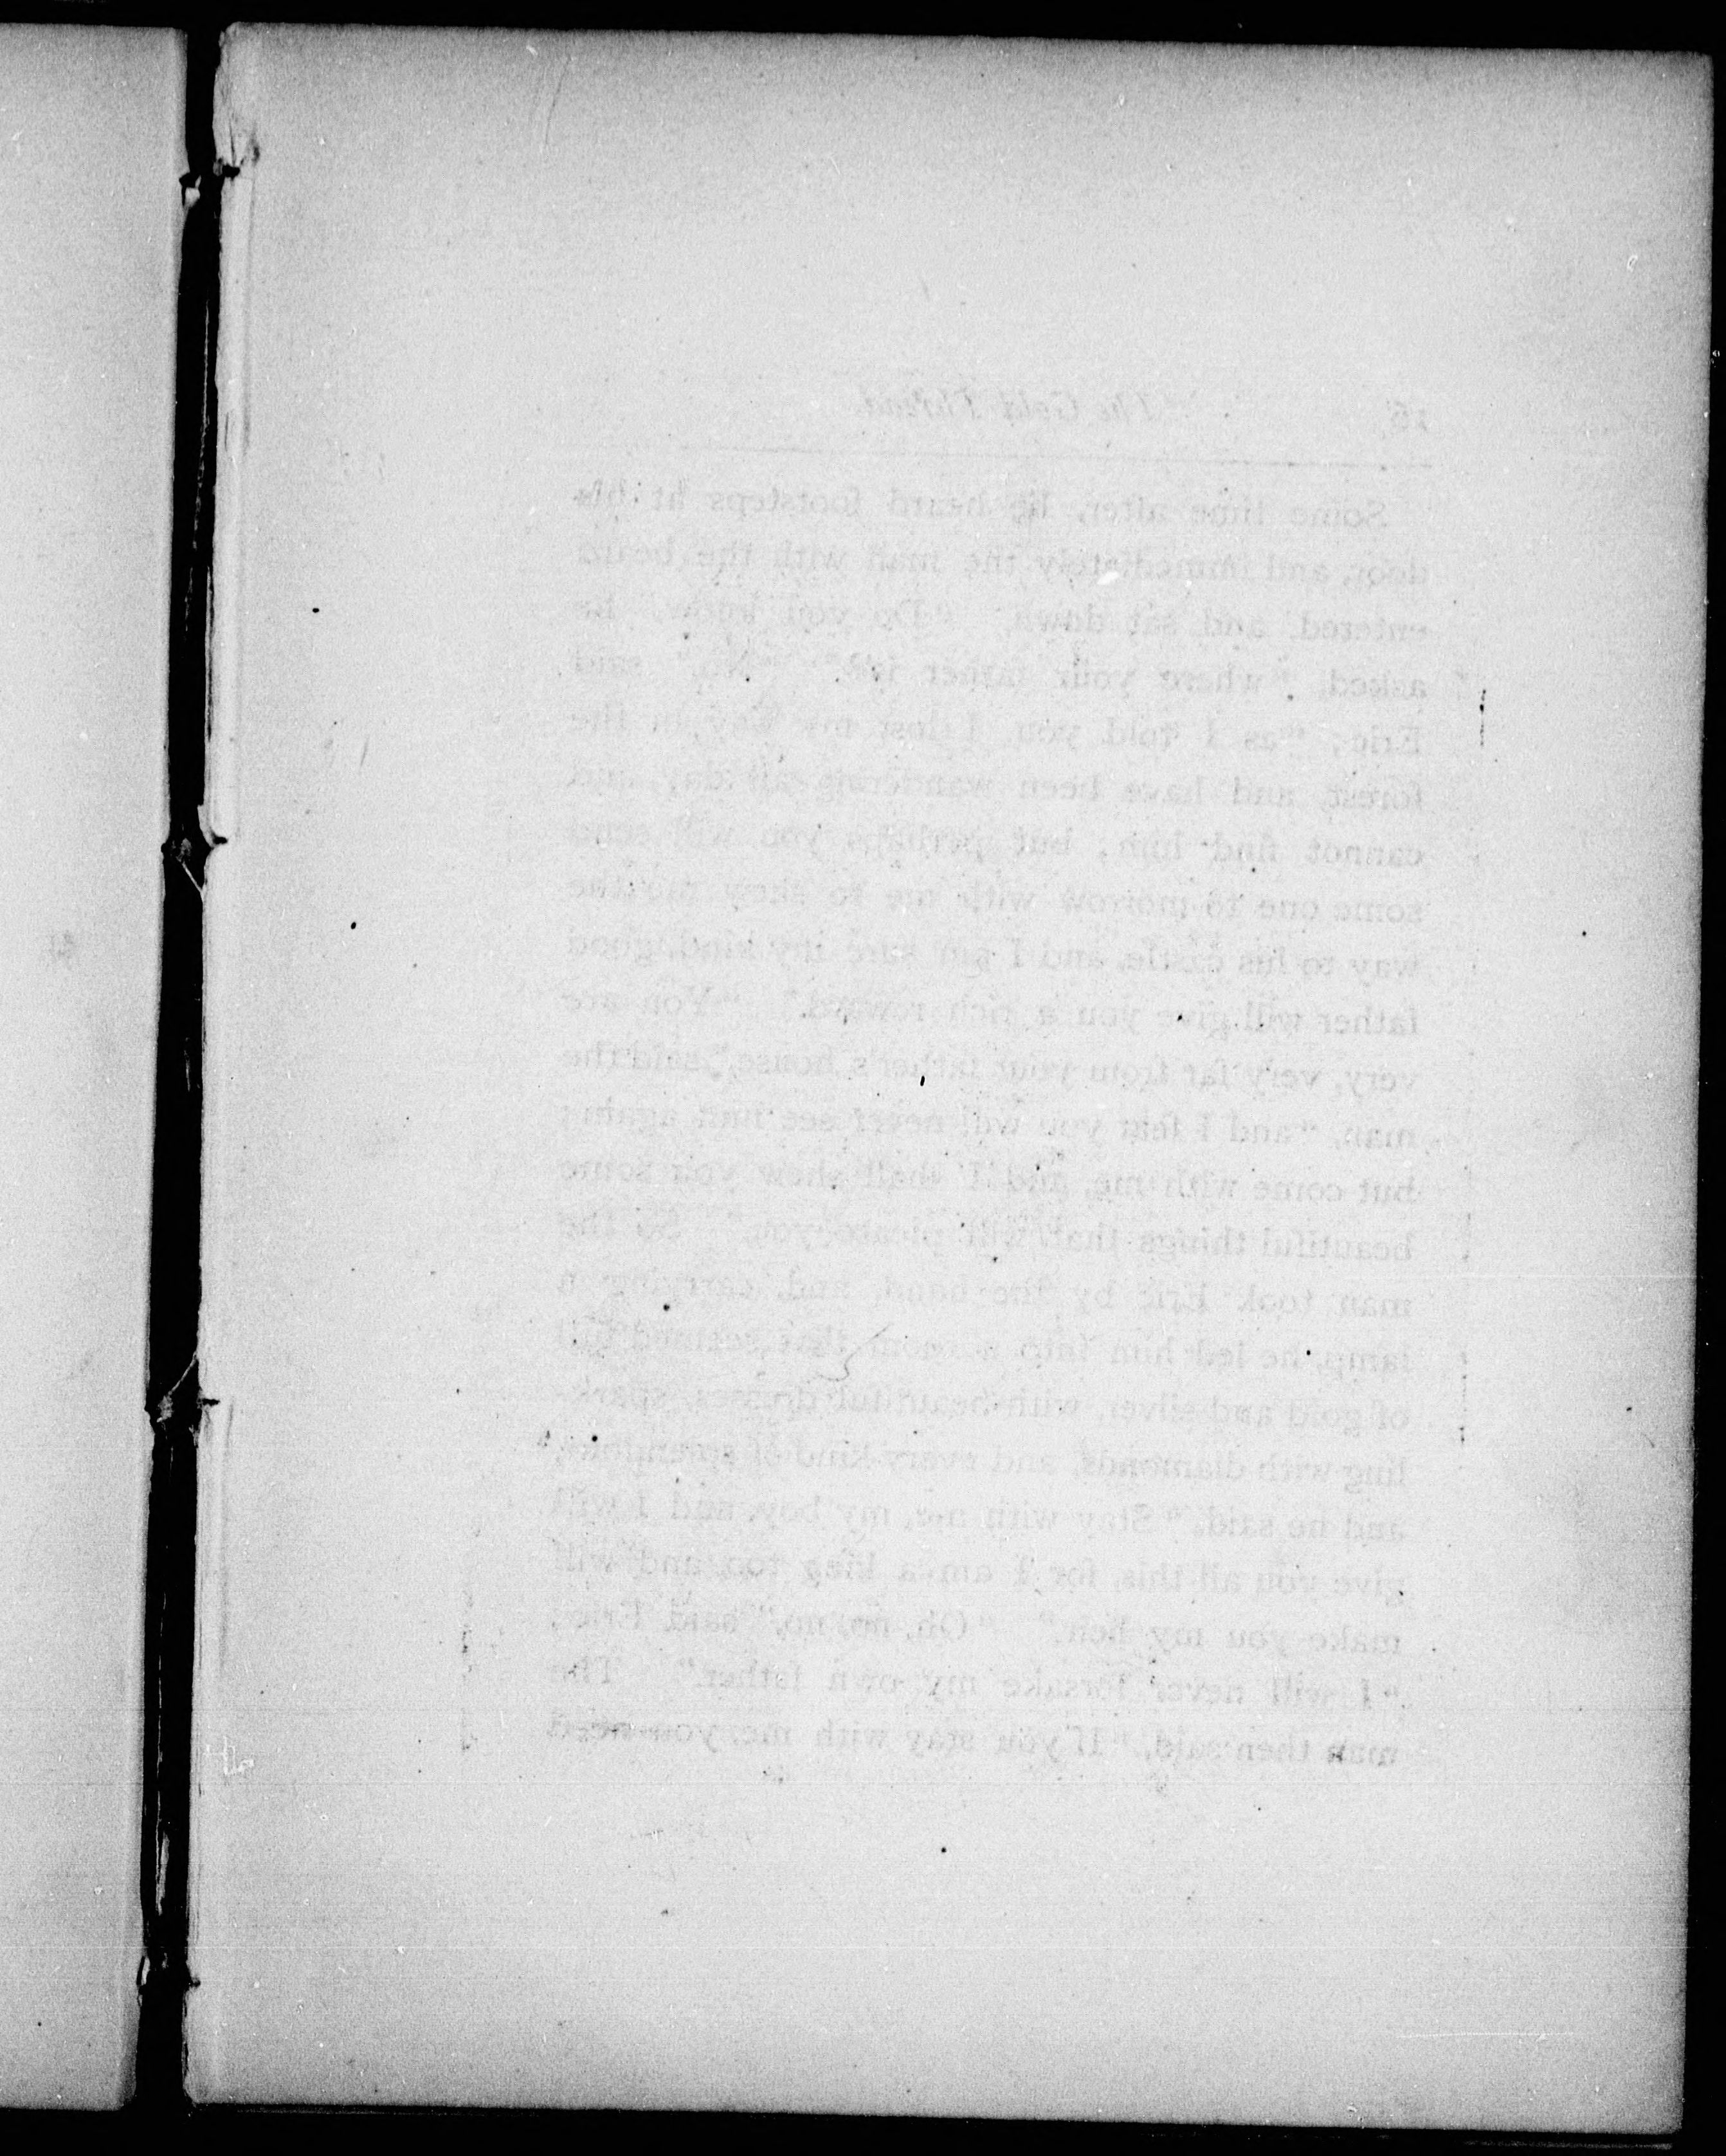 16 The Gold Thread.
Some time after, he heard footsteps at his
door, and immediately the man with the beard
entered and sat down. "Do you know," he
asked, "where your father is?" "No," said
Eric; "as I told you, I lost my way in the
forest, and have been wandering all day, and
cannot find him; but perhaps you will send
some one to-morrow with me to shew me the
way to his castle, and I am sure my kind, good
father will give you a rich reward." "You are
very, very far from your father's house," said the
man, "and I fear you will never see him again;
but come with me, and I shall shew you some
beautiful things that will please you." So the
man took Eric by the hand, and, carrying a
lamp, he led him into a room that seemed full
of gold and silver, with beautiful dresses, spark-
ling with diamonds, and every kind of splendour,
and he said, "Stay with me, my boy, and I will
give you all this, for I am a king too, and will
make you my heir." "Oh, no, no," said Eric;
"I will never forsake my own father." The
man then said, "If you stay with me, you need